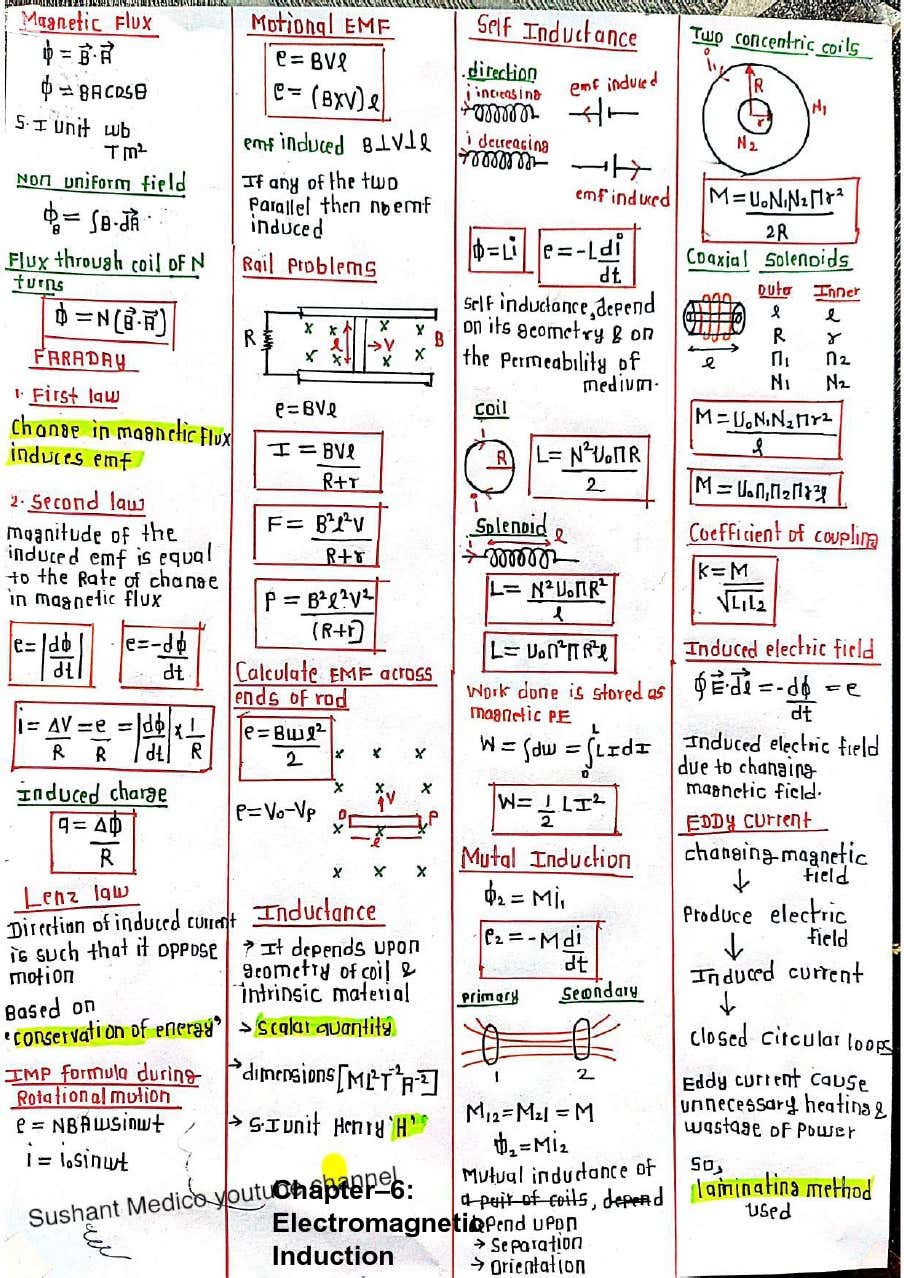 Magnetic Flux
ϕ = B⃗·A⃗
ϕ = BACOSθ
S.I unit wb
Tm²
Non uniform field
ϕ_B = ∫B·dA⃗
Flux through coil of N
turns
ϕ = N(B⃗·A⃗)
FARADAY
1. First law
Change in magnetic flux
induces emf
2. Second law
magnitude of the
induced emf is equal
to the Rate of change
in magnetic flux
e = |dϕ/dt| e = -dϕ/dt
i = ΔV/R = e/R = |dϕ/dt| × 1/R
Induced charge
q = Δϕ/R
Lenz law
Direction of induced current
is such that it oppose
motion
Based on
"conservation of energy"
IMP formula during
Rotational motion
e = NBAωsinωt
i = i₀sinωt
Sushant Medico youtube channel
Motional EMF
e = BVl
e = (BXV)l
emf induced B⊥V⊥l
If any of the two
Parallel then no emf
induced
Rail Problems
R x x x x l → V x x x x B
e = BVl
I = BVl/R+r
F = B²l²V/R+r
P = B²l²V²/(R+r)
Calculate EMF across
ends of rod
e = Bωl²/2
x x x
x x x
e = V₀-Vₚ O V P
x x x
l
x x x
Inductance
→ It depends upon
geometry of coil &
intrinsic material
→ Scalar quantity
→ dimensions [ML²T⁻²A⁻²]
→ S.I unit Henry 'H'
Chapter–6:
Electromagnetic
Induction
Self Inductance
direction
i increasing emf induced
i decreasing
emf induced
ϕ = Li e = -Ldi/dt
Self inductance, depend
on its geometry & on
the permeability of
medium.
coil
i R i
L = N²U₀ΠR/2
Solenoid
i l
L = N²U₀ΠR²/l
L = U₀n²ΠR²l
Work done is stored as
magnetic PE
W = ∫dw = ∫₀ᴸ LIdI
W = 1/2 LI²
Mutal Induction
ϕ₂ = Mi₁
e₂ = -Mdi/dt
primary Secondary
1 2
M₁₂ = M₂₁ = M
ϕ₂ = Mi₂
Mutual inductance of
a pair of coils, depend
Depend upon
→ Separation
→ Orientation
Two concentric coils
i₁ R r N₁
N₂
M = U₀N₁N₂Πr²/2R
Coaxial Solenoids
Outer Inner
l l
R r
n₁ n₂
N₁ N₂
l
M = U₀N₁N₂Πr²/l
M = U₀n₁n₂Πr²l
Coefficient of coupling
K = M/√L₁L₂
Induced electric field
∮E⃗·dl⃗ = -dϕ/dt = e
Induced electric field
due to changing
magnetic field.
EDDY CURRENT
changing magnetic
field
↓
Produce electric
field
↓
Induced current
↓
Closed circular loops
Eddy current cause
unnecessary heating &
wastage of power
So,
laminating method
used